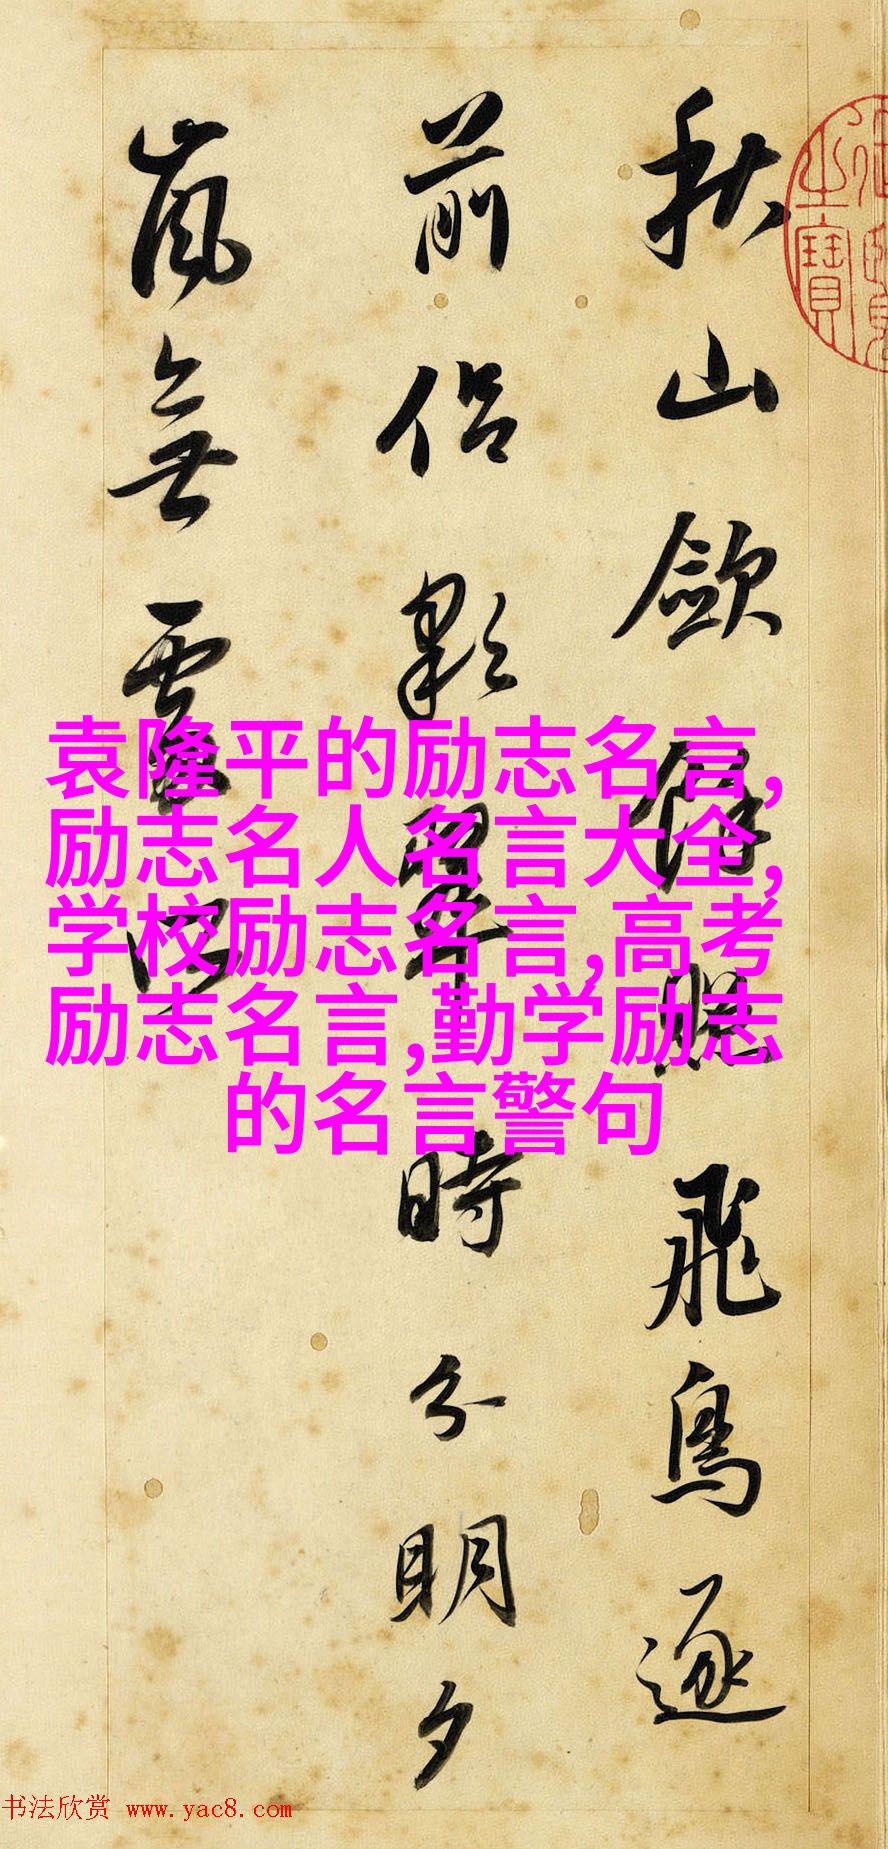 秋山歛餘照飛鳥逐
前侣彩翠時分明夕
嵐無雲所
之寶
袁隆平的励志名言,
励志名人名言大全,
学校励志名言,高考
励志名言,勤学励志
的名言警句
书法欣赏 www.yac8.com